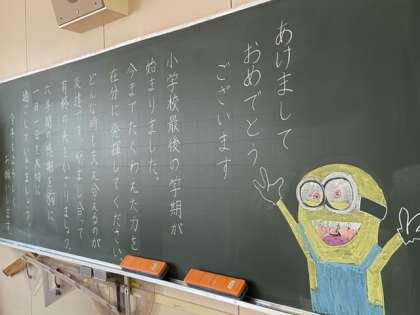 あけまして
おめでとう
ございます
小学校最後の学期が
始まりました。
今までたくわえた力を
存分に発揮してください。
どんな時も支え合えるのが
友達です。励まし合って
有終の美をかざりましょう。
六年間の感謝を胸に
一日一日を大切に
過ごしていきましょう。
今年もよろしく
お願いします